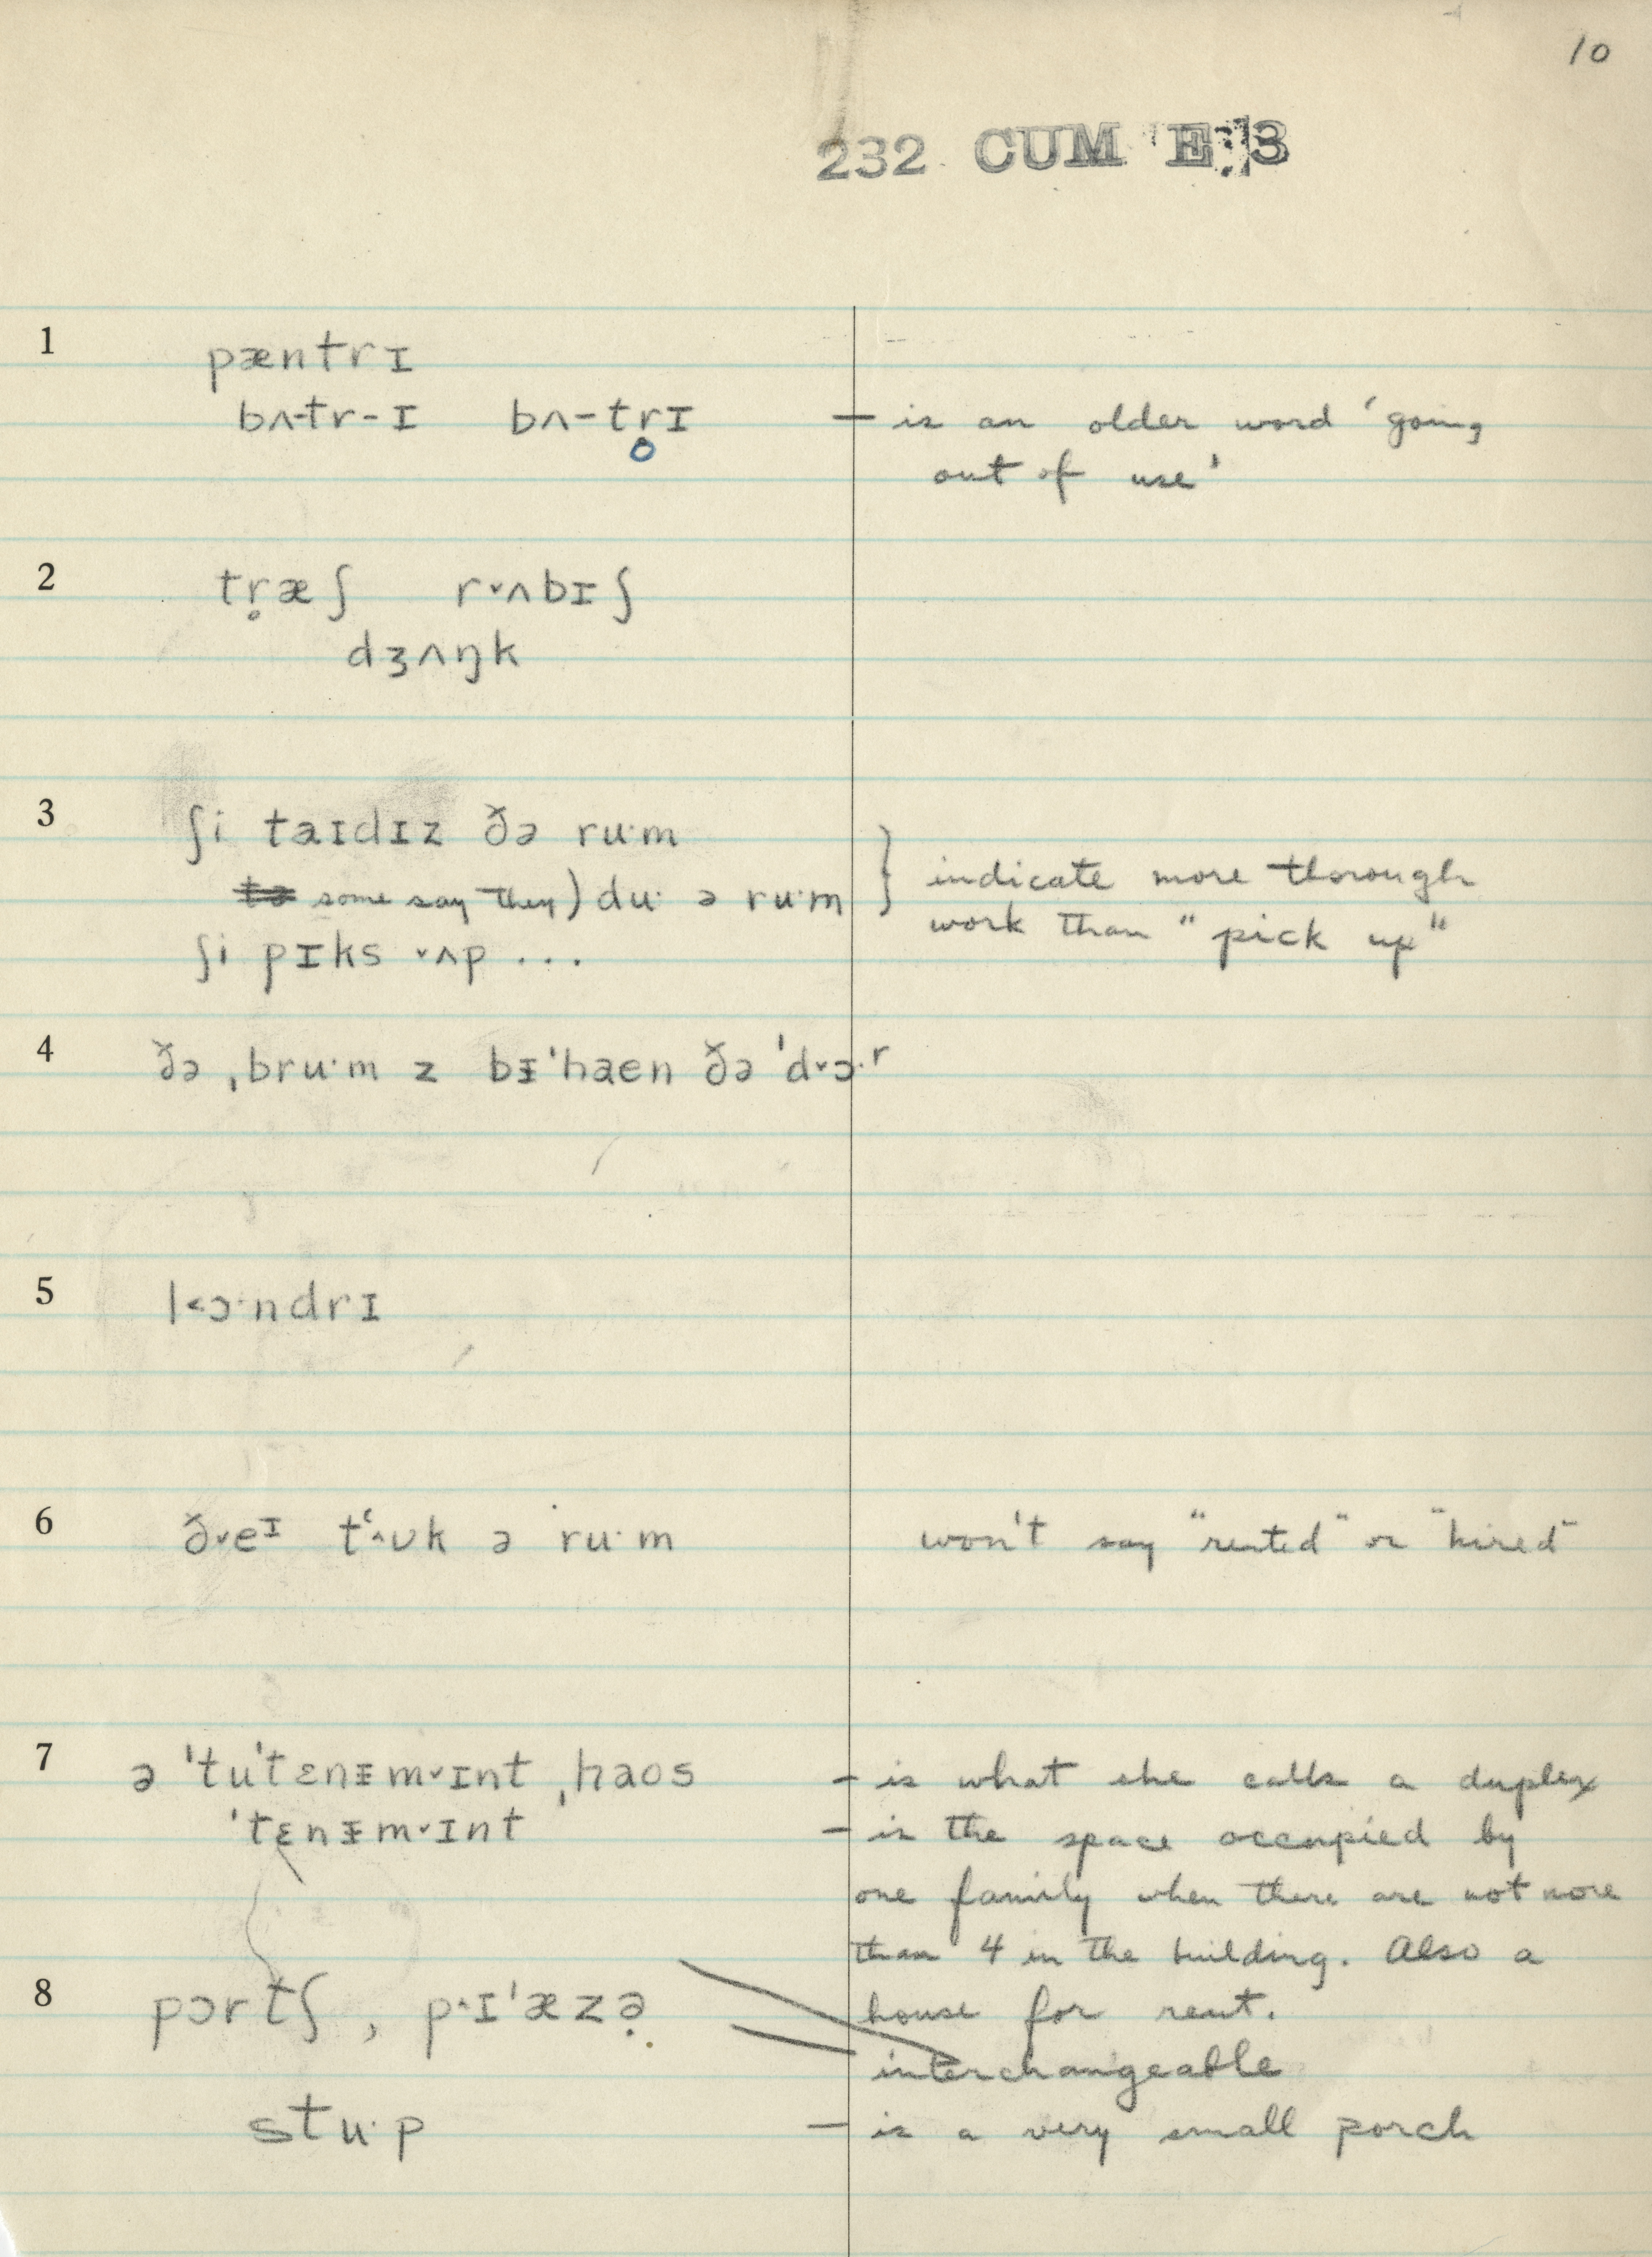 10
232 CUM E:3
1 pæntrɪ
bʌ-tr-ɪ bʌ-tr̥ɪ — is an older word 'going
out of use'
2 tr̥æʃ r˅ʌbɪʃ
dʒʌŋk
3 ʃi taɪdɪz ðə ru·m
some say they) du· ə ru·m } indicate more thorough
ʃi pɪks ˅ʌp ... work than "pick up"
4 ðə ˌbru·m z bᵻˈhaen ðə ˈd˅ɔ·ʳ
5 l˂ɔ·ndrɪ
6 ð˅eᴵ tʻ˄ʊk ə ru·m won't say "rented" or "hired"
7 ə ˈtuˈtɛnᵻm˅ɪnt ˌhaos — is what she calls a duplex
ˈtɛnᵻm˅ɪnt — is the space occupied by
one family when there are not more
than 4 in the building. Also a
house for rent.
8 pɔrtʃ, p˄ɪˈæzə interchangeable
stu·p — is a very small porch